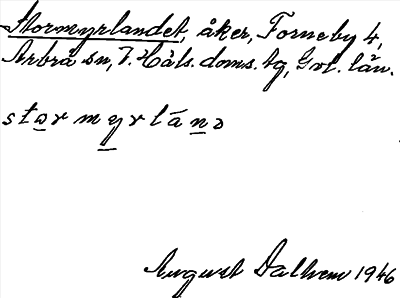 Stormyrlandet, åker, Forneby 4,
Arbrå sn, V. Häls. doms. tg, Gvl. län.
stormyrlånd
August Dalhem 1946